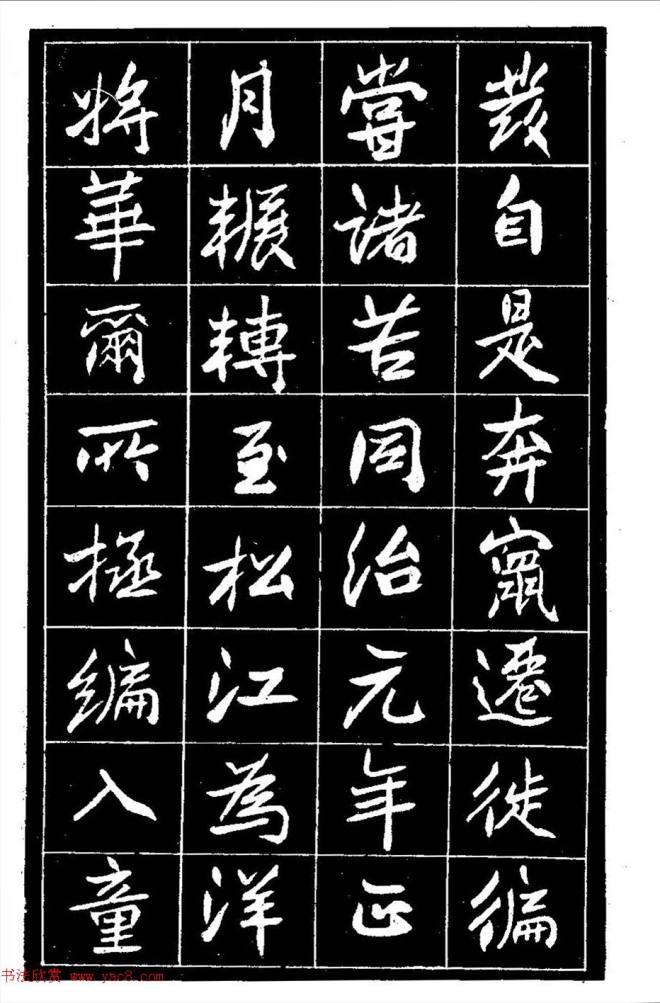 自是奔竄遷徙徧
嘗諸苦同治元年正
月輾轉至松江為洋
將華爾所拯編入童
书法欣赏 www.yac8.com